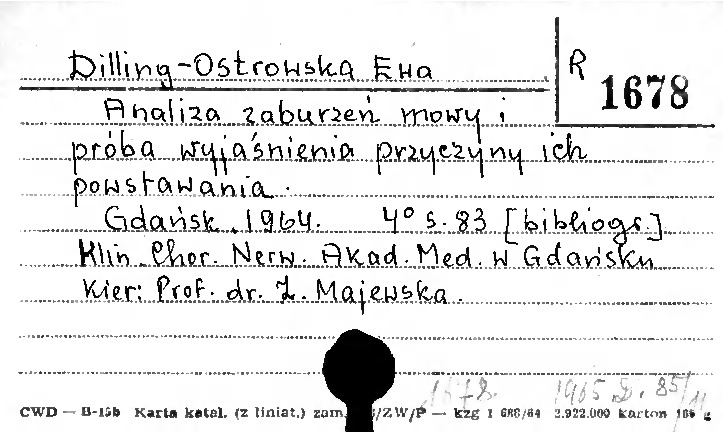 Dilling-Ostrowska Ewa
R 1678
Analiza zaburzeń mowy i
próba wyjaśnienia przyczyny ich
powstawania.
Gdańsk. 1964. 4° s. 83 [bibliogr.]
Klin. Chor. Nerw. Akad. Med. w Gdańsku
Kier: Prof. dr. Z. Majewska.
1678. 1965 D. 85/
CWD — B-15b Karta katal. (z liniat.) zam. /ZW/P — kzg 1 688/64 2.922.000 karton g